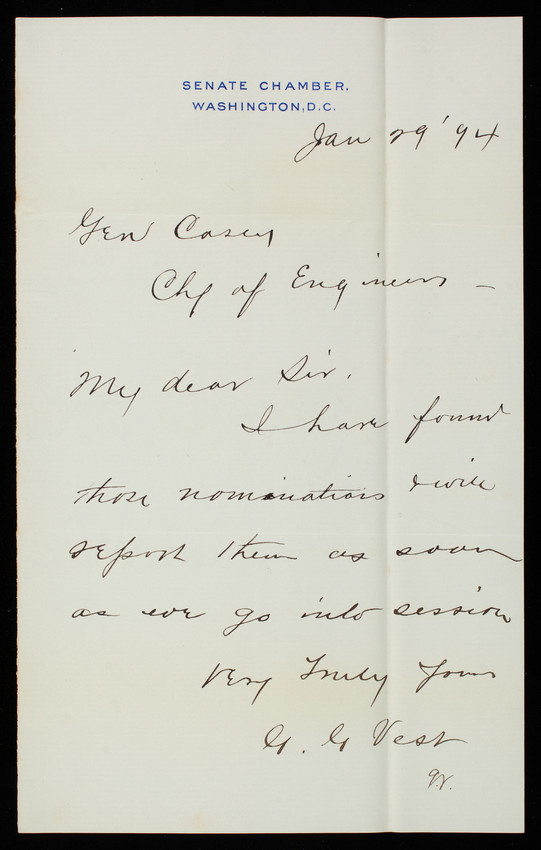 SENATE CHAMBER,
WASHINGTON, D.C.
Jan 29 '94
Gen Casey
Chf of Engineers -
My dear Sir.
I have found
those nominations & will
report them as soon
as we go into session
Very Truly Yours
G. G Vest